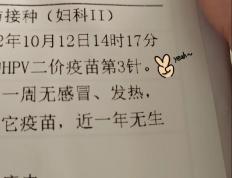 接种（妇科II）
2年10月12日14时17分
HPV二价疫苗第3针。
yeah~
一周无感冒、发热，
它疫苗，近一年无生